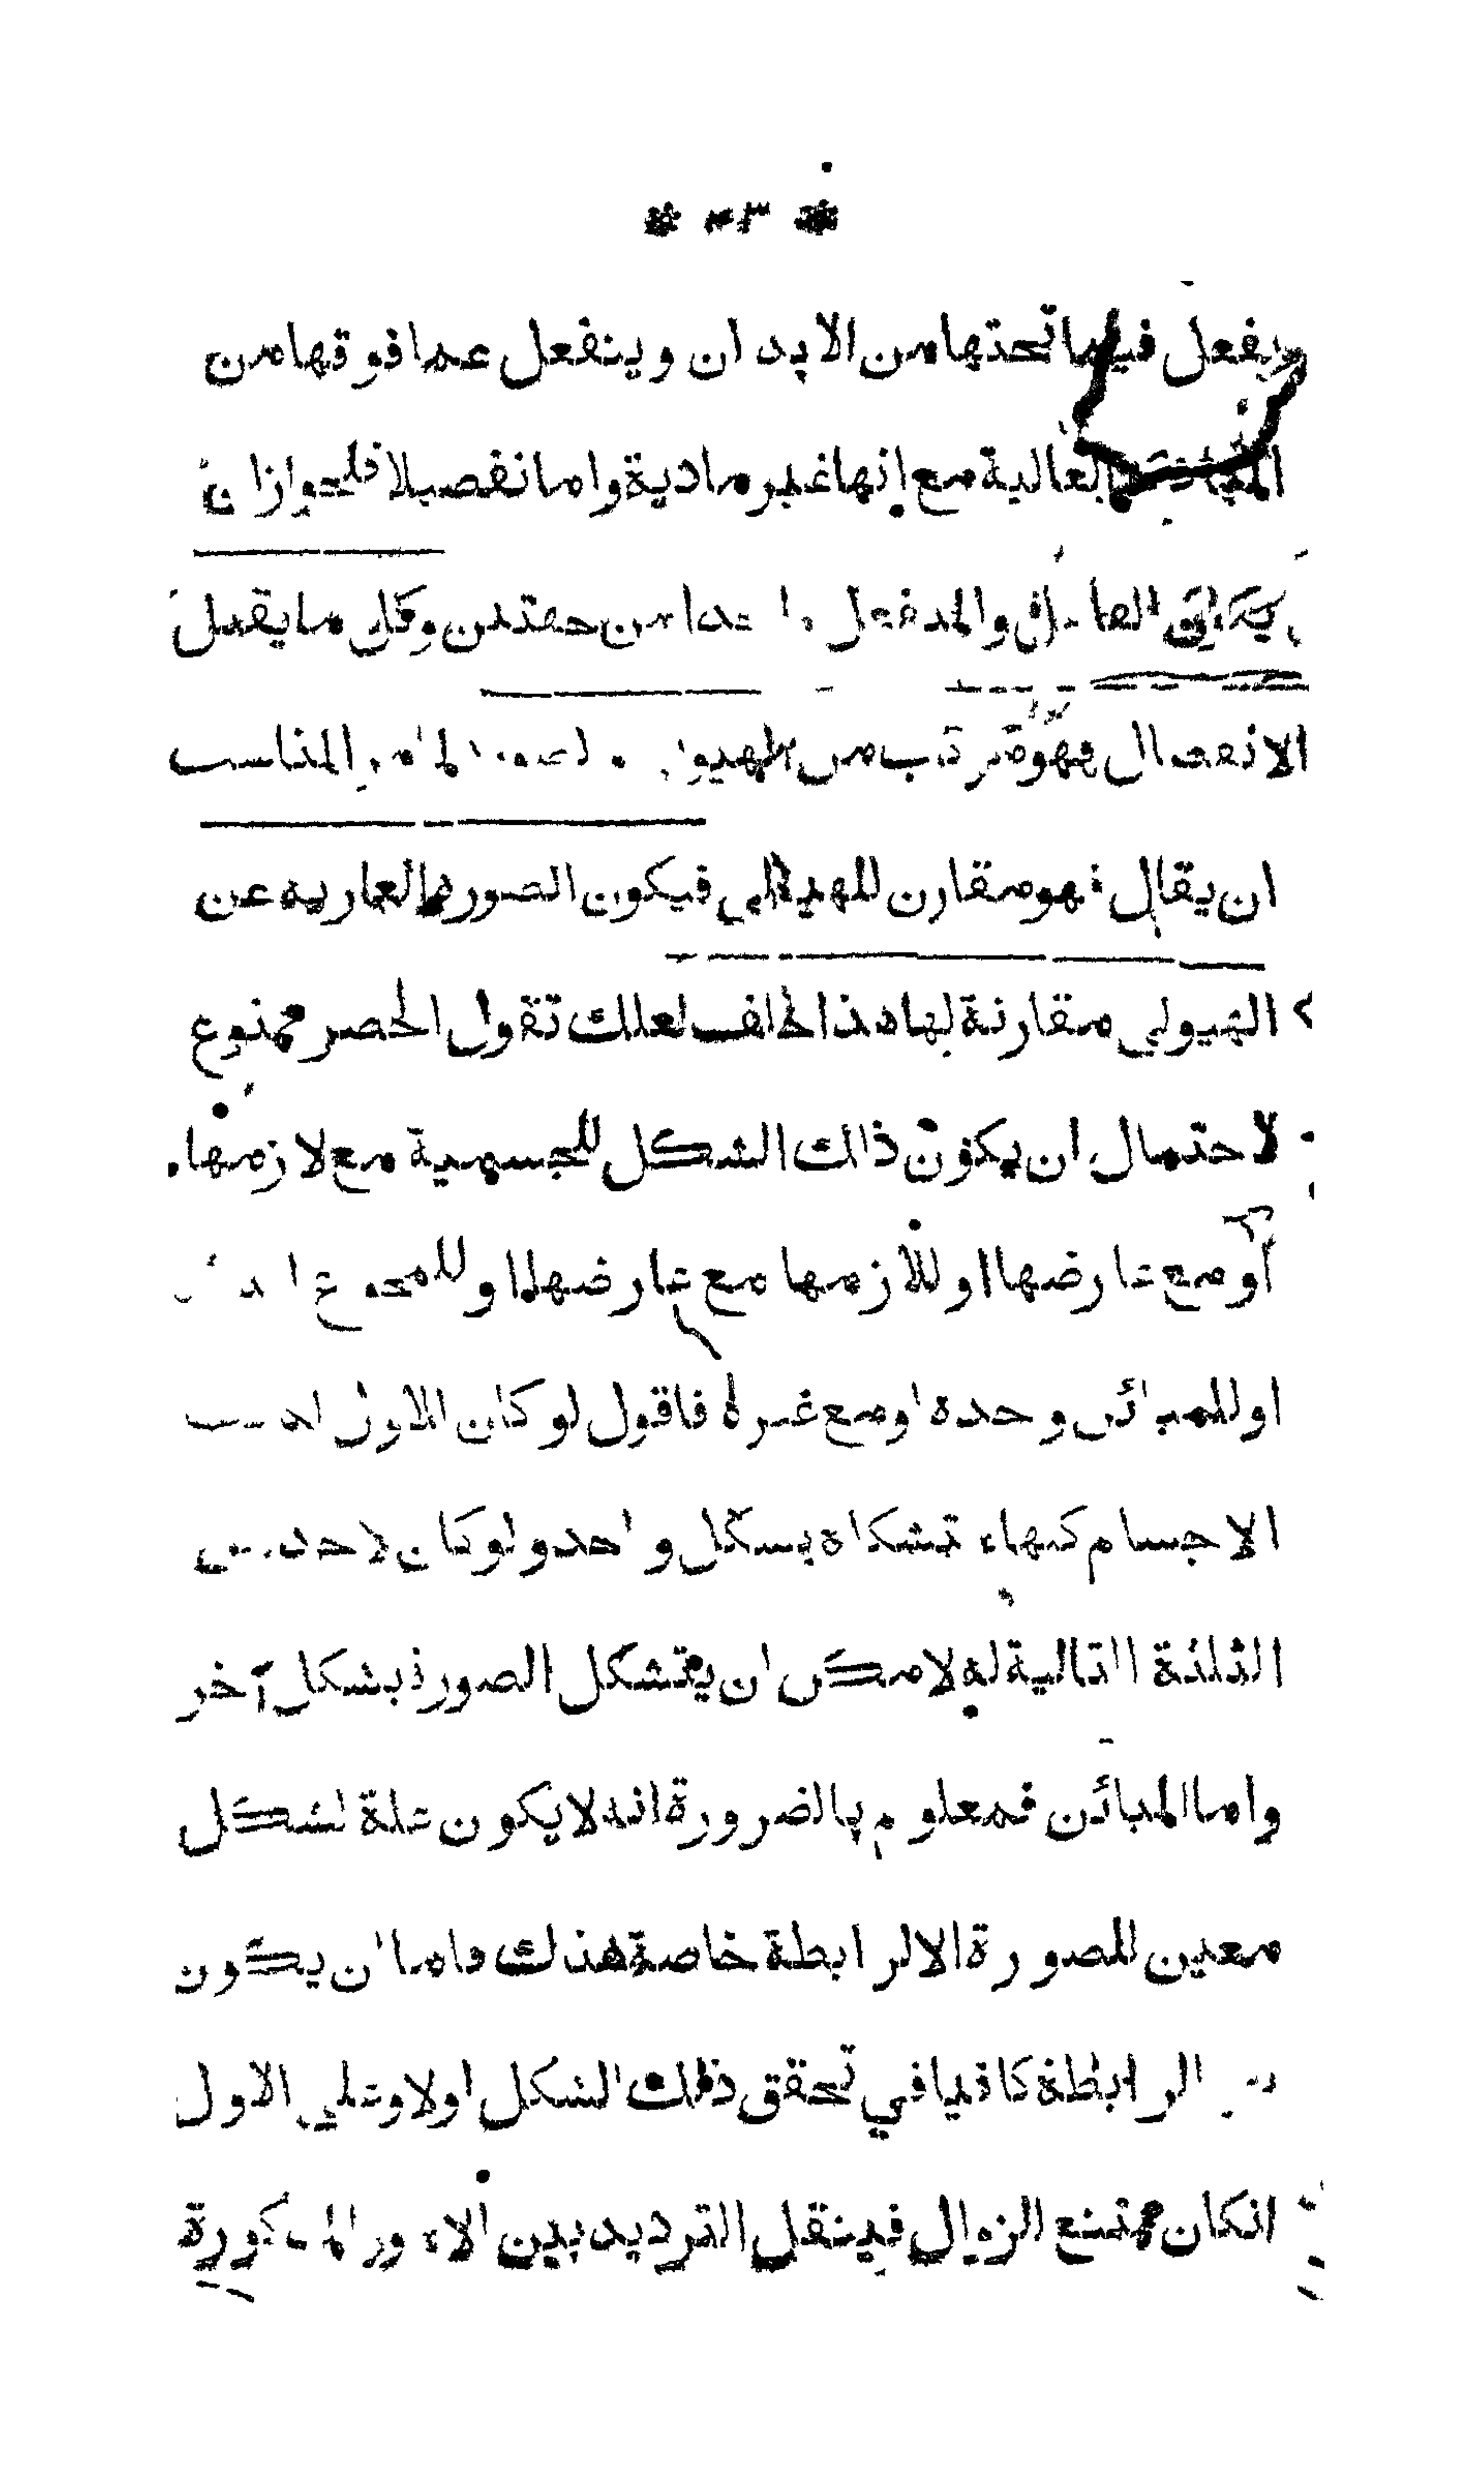 * ٤٣ *
يفعل فيما تحتها من الابدان وينفعل عما فوقها من
العالية مع انها غير مادية واما تفصيلا فلجواز ان
يكون الفاعل والمنفعل واحدا من جهتين وكل ما يقبل
الانفصال فهو مركب من الهيولى والصورة المناسب
ان يقال فهو مقارن للهيولى فيكون الصورة العارية عن
الهيولى مقارنة لها هذا خلف لعلك تقول الحصر ممنوع
لاحتمال ان يكون ذلك الشكل للجسمية مع لازمها
او مع عارضها او للازمها مع عارضها او للمجموع
او للمبائن وحده او مع غيره فاقول لو كان الاول
الاجسام كلها متشكلة بشكل واحد ولو كان لاحد من
الثلثة التالية له لامكن ان يتشكل الصورة بشكل آخر
واما المبائن فمعلوم بالضرورة انه لا يكون علة لشكل
معين للصورة الا لرابطة خاصة هناك فاما ان يكون
الرابطة كافيا في تحقق ذلك الشكل اولا وعلى الاول
انكان ممتنع الزوال فينقل الترديد بين الامور المذكورة